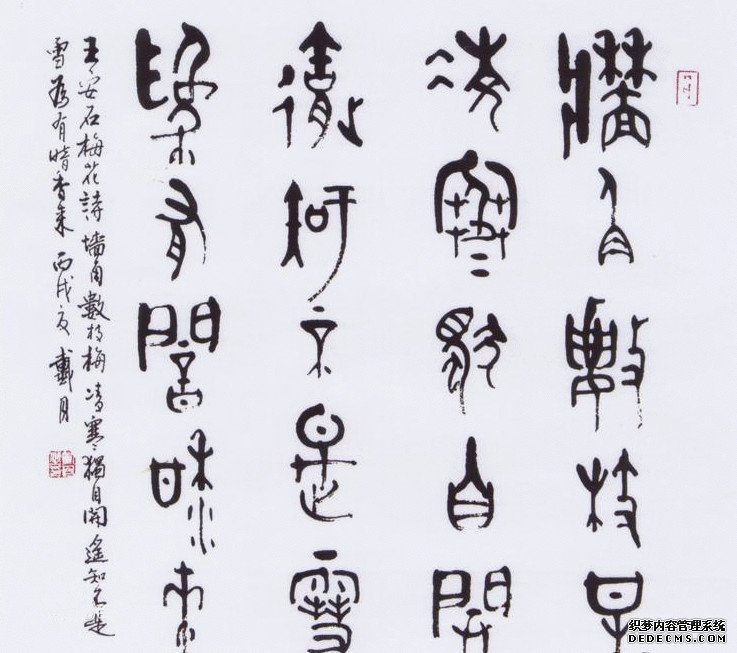 牆角數枝梅
凌寒獨自開
遙知不是雪
為有闇香來
王安石梅花詩墻角數枝梅凌寒獨自開遙知不是
雪為有暗香來丙戌夏戴月
织梦内容管理系统
DEDECMS.COM